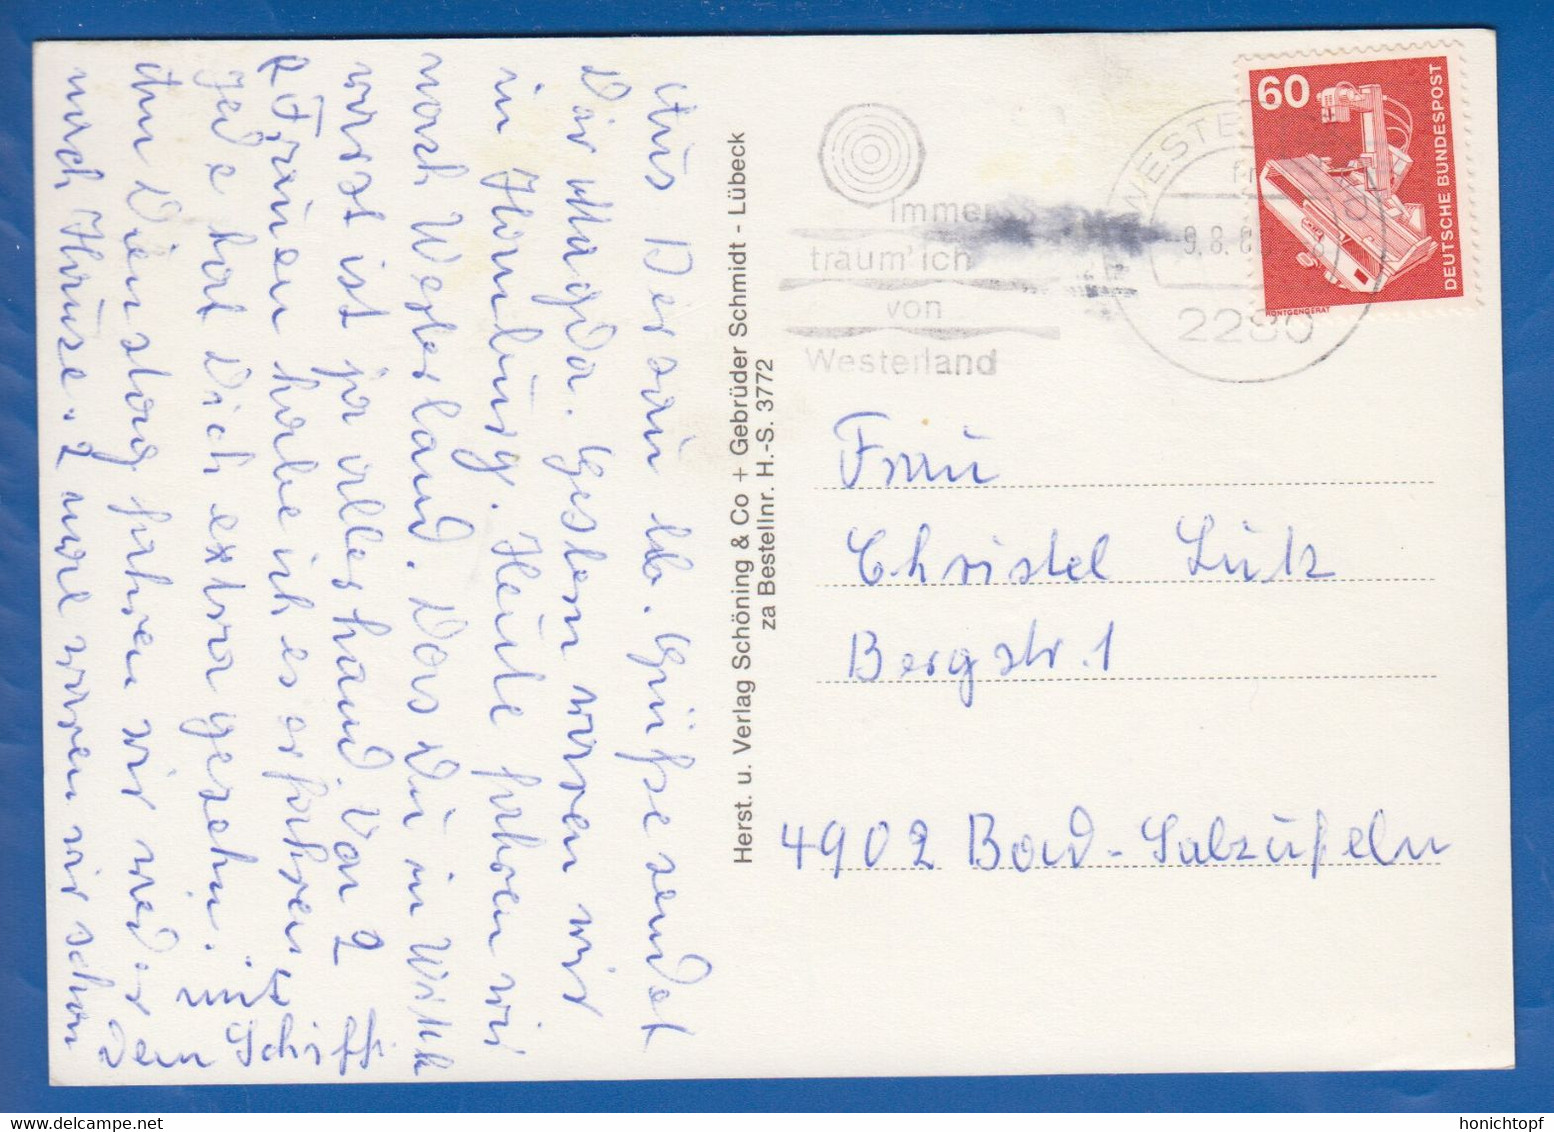 Aus Dersau lb. Grüße sendet
Dir Magda. Gestern waren wir
in Hamburg. Heute fahren wir
nach Westerland. Das Du in Wyk
warst ist ja allerhand. Von 2
Frauen habe ich es erfahren,
jede hat Dich extra gesehn.
Am Dienstag fahren wir wieder
nach Hause. 2 mal waren wir schon
mit
dem Schiff
Herst. u. Verlag Schöning & Co + Gebrüder Schmidt - Lübeck
za Bestellnr. H.-S. 3772
Immer
träum' ich
von
Westerland
9.8.8
2280
60
DEUTSCHE BUNDESPOST
RÖNTGENGERÄT
Frau
Christel Lütz
Bergstr. 1
4902 Bad-Salzufeln
honichtopf